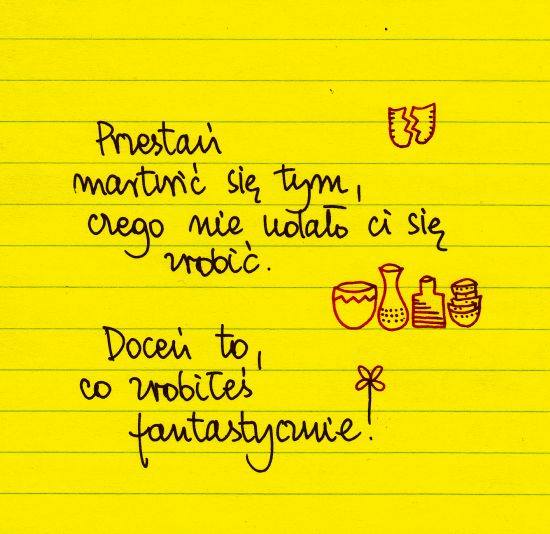 Przestań
martwić się tym,
czego nie udało ci się
zrobić.
Doceń to,
co zrobiłeś
fantastycznie!